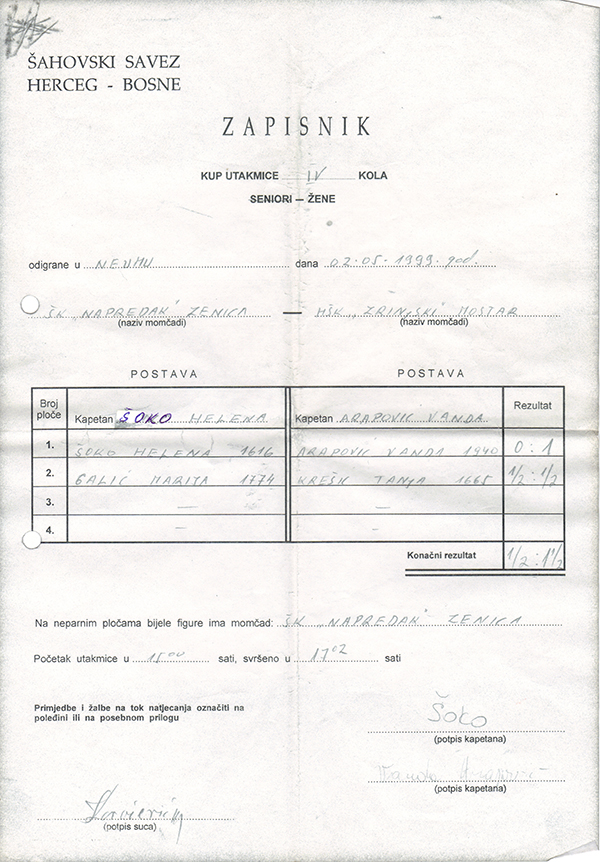 ŠAHOVSKI SAVEZ
HERCEG - BOSNE
ZAPISNIK
KUP UTAKMICE IV KOLA
SENIORI – ŽENE
odigrane u NEUMU dana 02.05.1999. god.
ŠK "NAPREDAK" ZENICA — HŠK "ZRINJSKI" MOSTAR
(naziv momčadi) (naziv momčadi)
POSTAVA POSTAVA
Broj ploče Kapetan ŠOKO HELENA Kapetan ARAPOVIĆ VANDA Rezultat
1. ŠOKO HELENA 1616 ARAPOVIĆ VANDA 1940 0:1
2. GALIĆ MARIJA 1774 KREŠIĆ TANJA 1665 1/2:1/2
3. — —
4. — —
Konačni rezultat 1/2:1 1/2
Na neparnim pločama bijele figure ima momčad: ŠK "NAPREDAK" ZENICA
Početak utakmice u 15 00 sati, svršeno u 17 02 sati
Primjedbe i žalbe na tok natjecanja označiti na
poleđini ili na posebnom prilogu
Šoko
(potpis kapetana)
Vanda Arapović
(potpis kapetana)
(potpis suca)